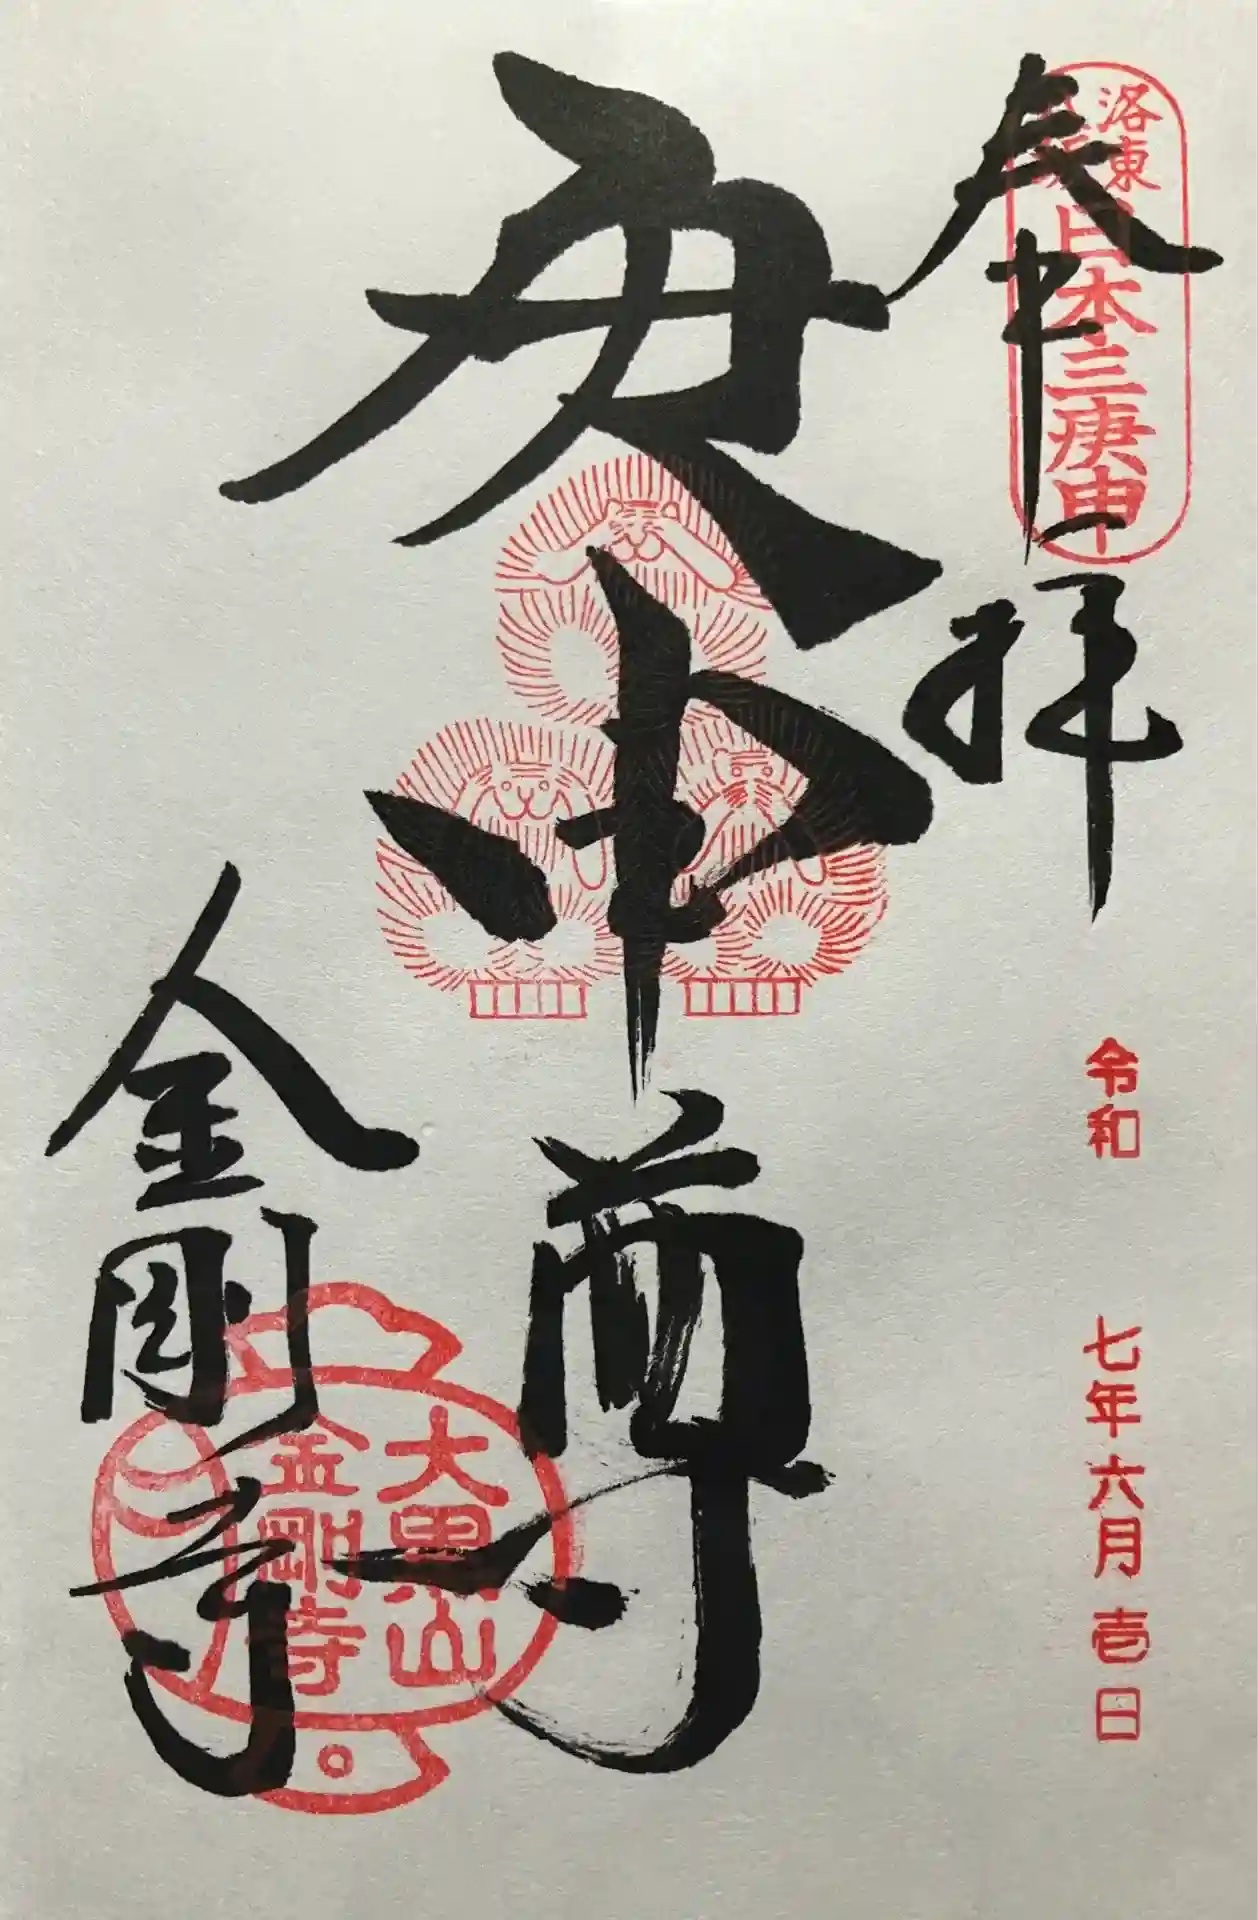 奉拝
洛東
八坂
日本三庚申
令和 七年六月壱日
庚申尊
金剛寺
大黒山
金剛寺